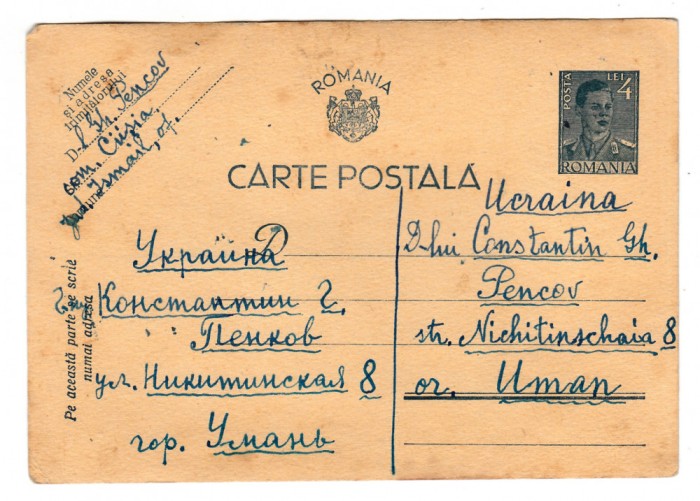 Numele
și adresa
trimițătorului
D-l Gh. Pencov
com. Cișia
jud. Ismail, of.
ROMANIA
CARTE POSTALĂ
POSTA LEI 4
ROMANIA
Pe această parte se scrie
numai adresa
Украйна
Константин Г.
Пенков
ул. Никитинская 8
гор. Умань
D
Ucraina
D-lui Constantin Gh.
Pencov
str. Nichitinschaia 8
or. Uman